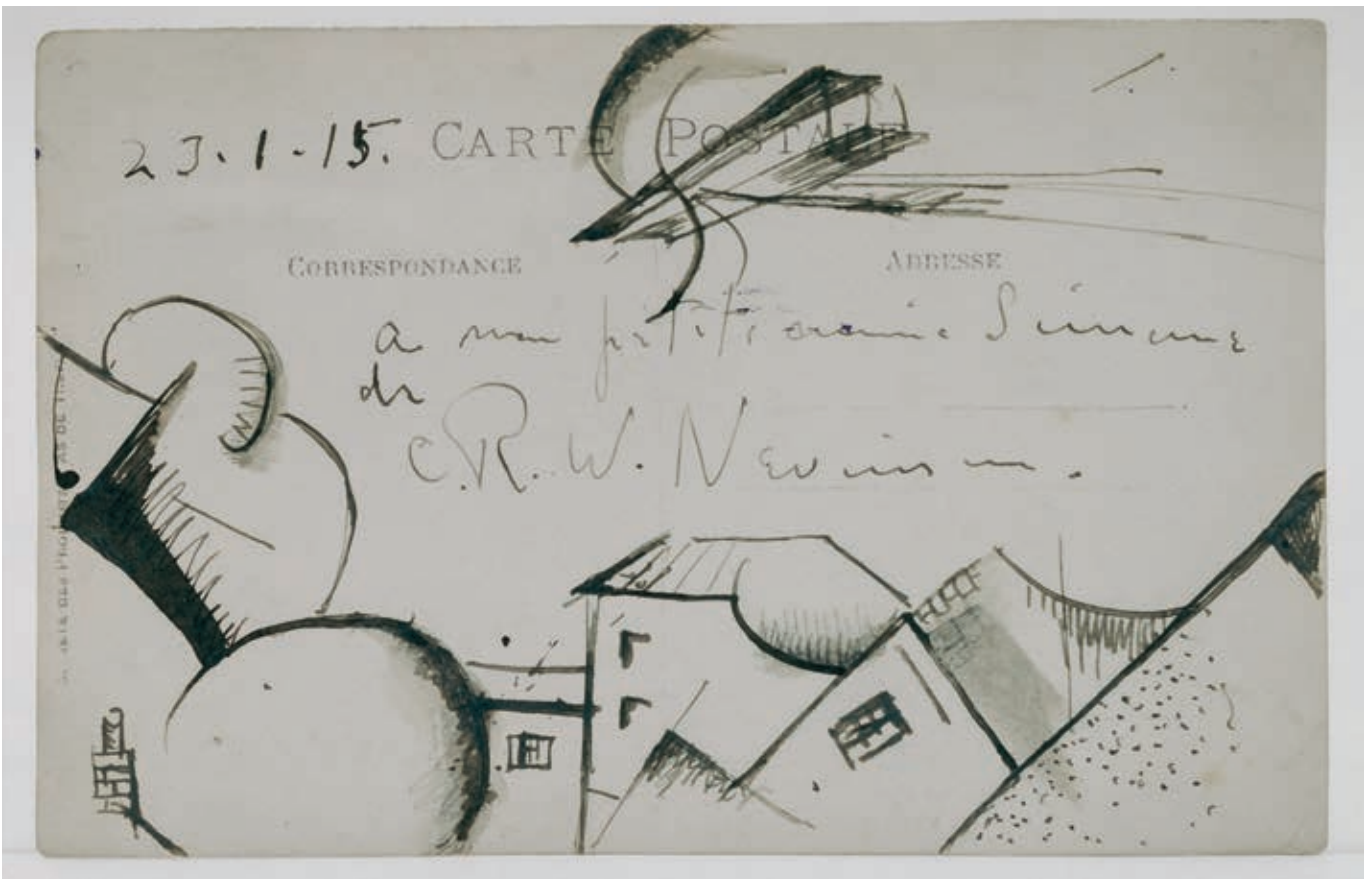 23.1.15. CARTE POSTALE
CORRESPONDANCE ADRESSE
a mon petit Simone
de
C.R.W. Nevinson.